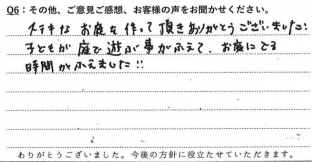 Q6:その他、ご意見ご感想、お客様の声をお聞かせください。
ステキなお庭を作って頂きありがとうございました。
子どもが庭で遊ぶ事がふえて、お庭にでる
時間がふえました!!
ありがとうございました。今後の方針に役立たせていただきます。